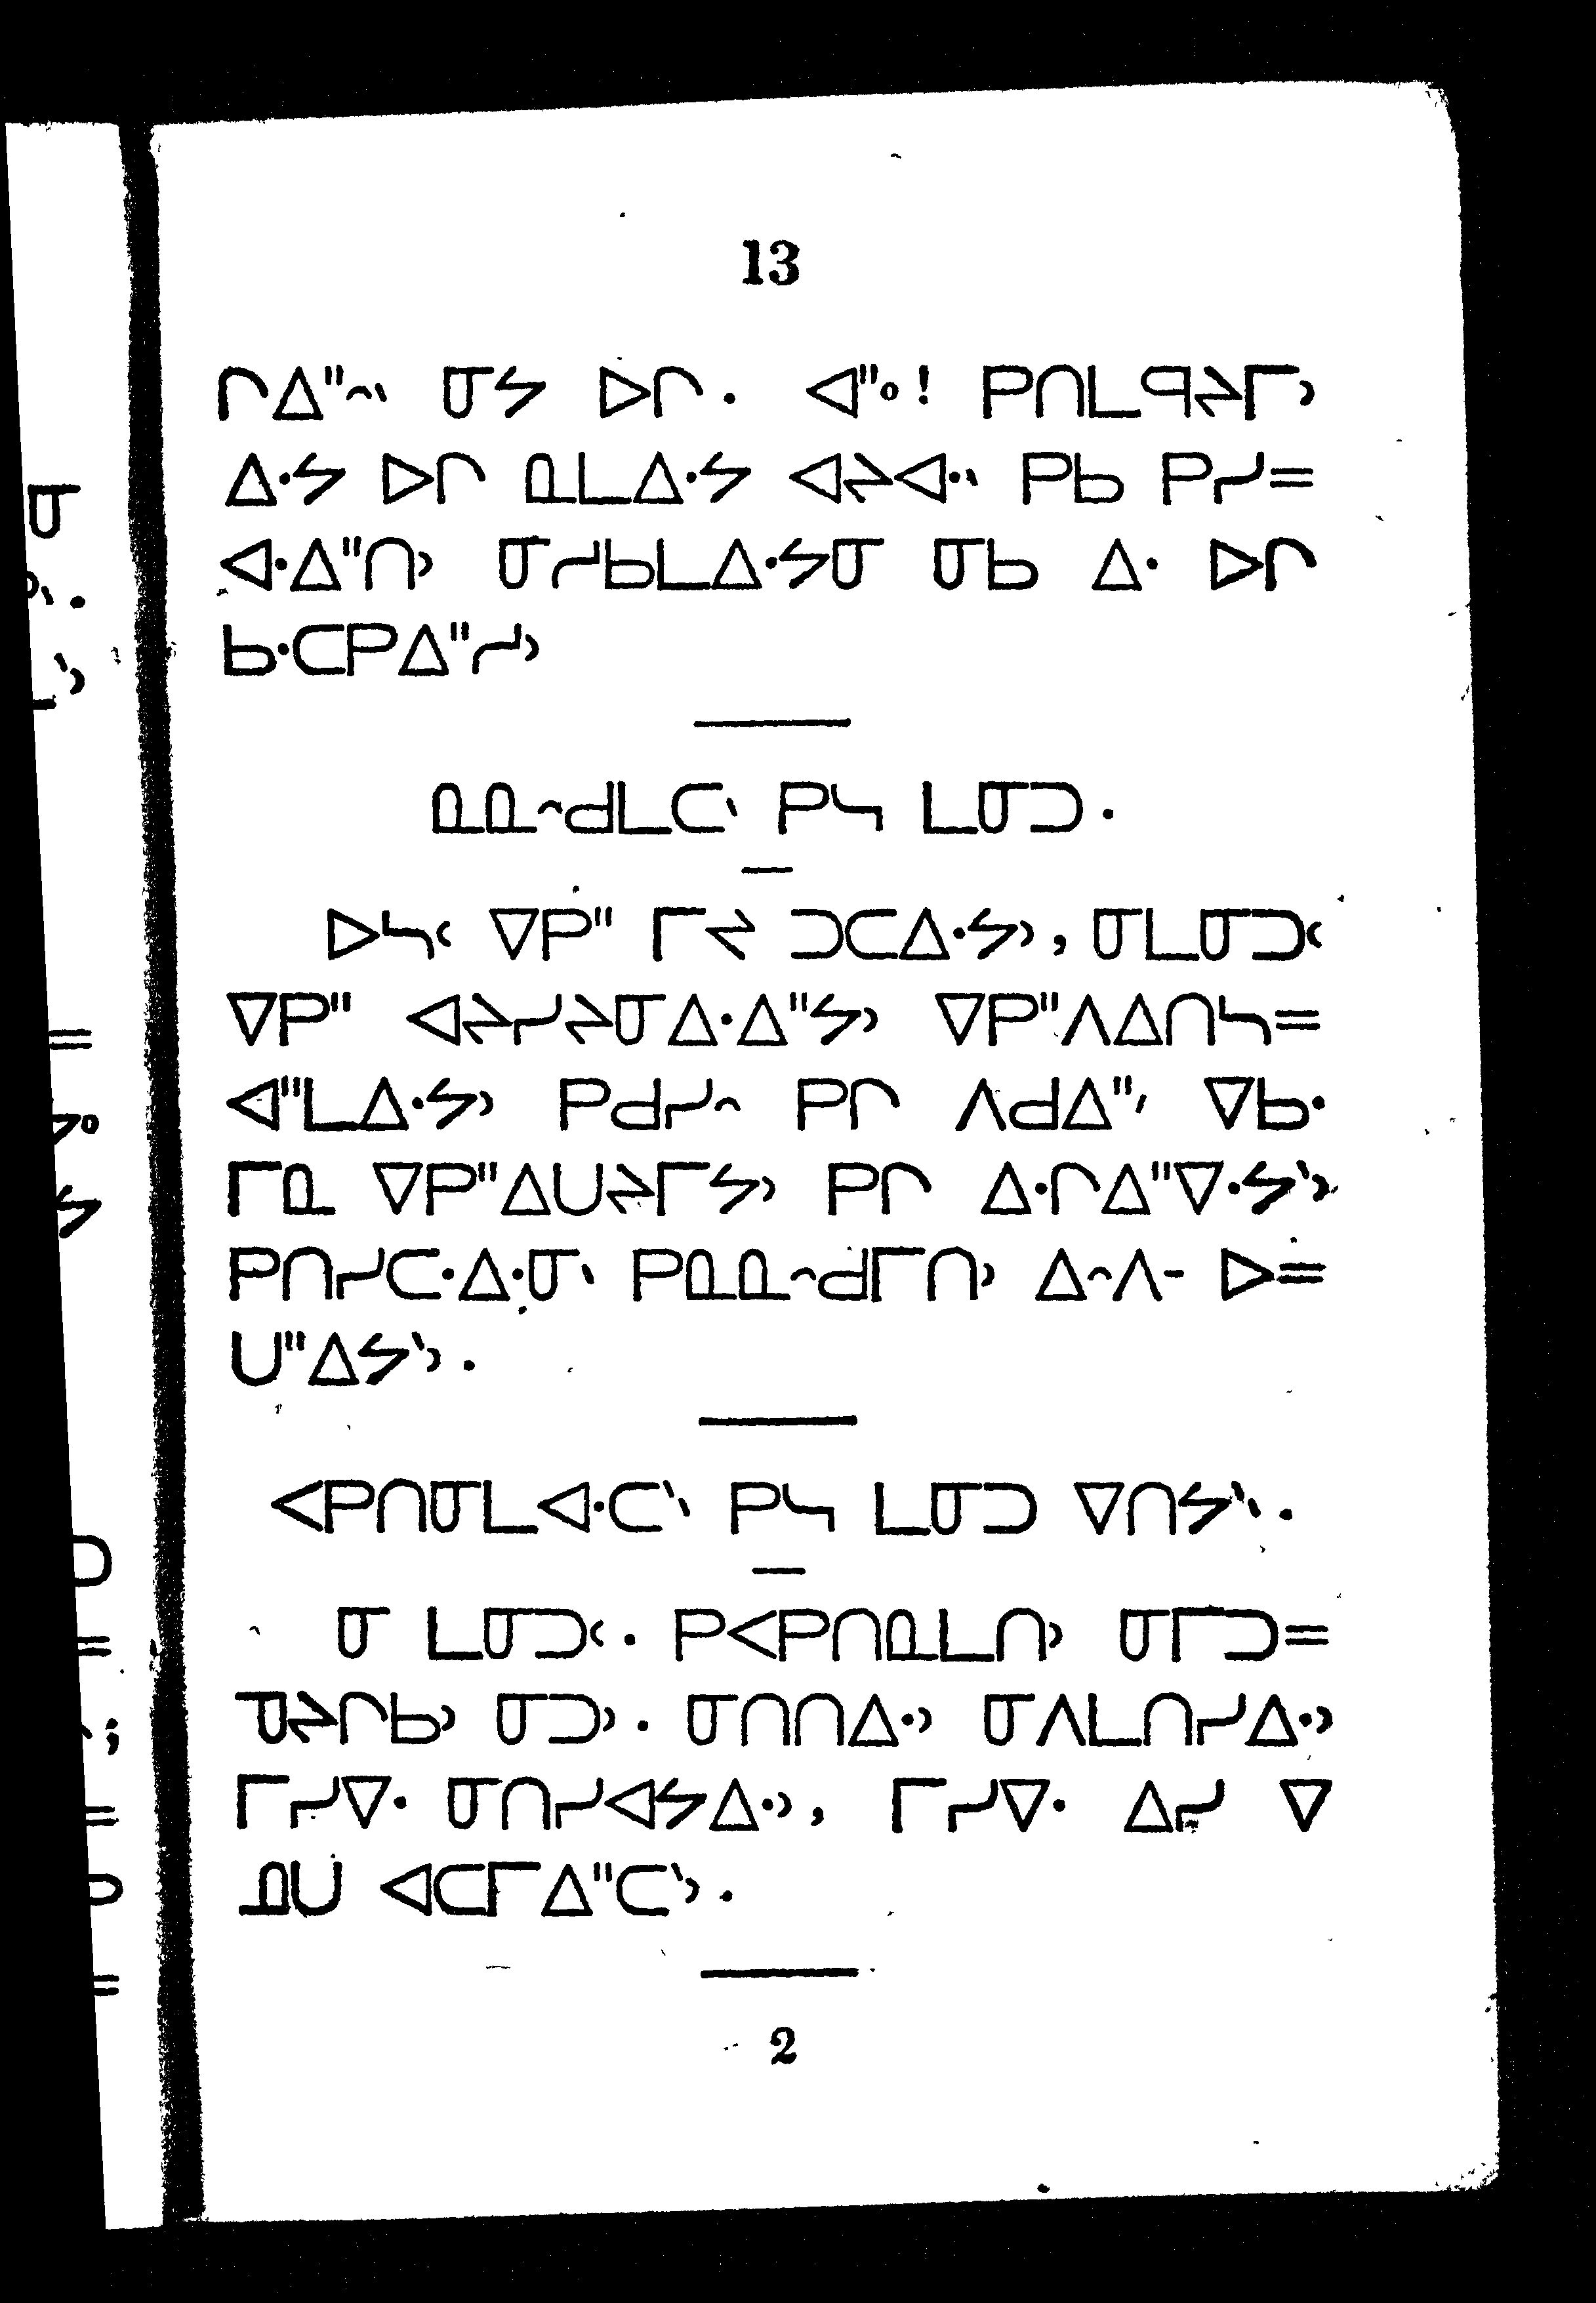 13
ᒋᐃ"ᐢᐠ ᓂᔭ ᐅᒋ. ᐊ"ᐤ! ᑭᑎᒪᑫᔨᒥᐣ
ᐃᐧᔭ ᐅᒋ ᓇᒪᐃᐧᔭ ᐊᔨᐊᐧᐠ ᑭᑲ ᑭᓯ=
ᐊᐧᐃ"ᑎᐣ ᓂᓯᑲᒪᐃᐧᔭᓂ ᓂᑲ ᐃᐧ ᐅᒋ
ᑲᐧᑕᑭᐃ"ᓯᐣ
ᓇᓇᐢᑯᒪᑕᐠ ᑭᓴ ᒪᓂᑐ.
ᐅᓴᒼ ᐁᑭ" ᒥᔪ ᑐᑕᐃᐧᔭᐣ, ᓂᒪᓂᑐᒼ
ᐁᑭ" ᐊᔨᓯᔨᓂᐃᐧᐃ"ᔭᐣ ᐁᑭ"ᐱᐃᑎᓴ=
ᐊ"ᒪᐃᐧᔭᐣ ᑭᑯᓯᐢ ᑭᒋ ᐱᑯᐃ"ᐟ ᐁᑲᐧ
ᒥᓇ ᐁᑭ"ᐃᑌᔨᒥᔭᐣ ᑭᒋ ᐃᐧᒋᐃ"ᐁᐧᔭᐠᐣ
ᑭᑎᓯᑕᐧᐃᐧᓂᐠ ᑭᓇᓇᐢᑯᒥᑎᐣ ᐃᐢᐱᐨ ᐅ=
ᑌ"ᐃᔭᐠᐣ.
ᐸᑭᑎᓂᒪᐊᐧᑕᐠᐠ ᑭᓴ ᒪᓂᑐ ᐁᑎᔭᐠᐠ.
ᓂ ᒪᓂᑐᒼ. ᑭᐸᑭᑎᓇᒪᑎᐣ ᓂᒥᑐ=
ᓀᔨᒋᑲᐣ ᓂᑐᐣ. ᓂᑎᑎᐃᐧᐣ ᓂᐱᒪᑎᓯᐃᐧᐣ
ᒥᓯᐁᐧ ᓂᑎᓯᐊᔭᐃᐧᐣ, ᒥᓯᐁᐧ ᐃᓯ ᐁ
ᓄᑌ ᐊᑕᒥᐃ"ᑕᐠᐣ.
2